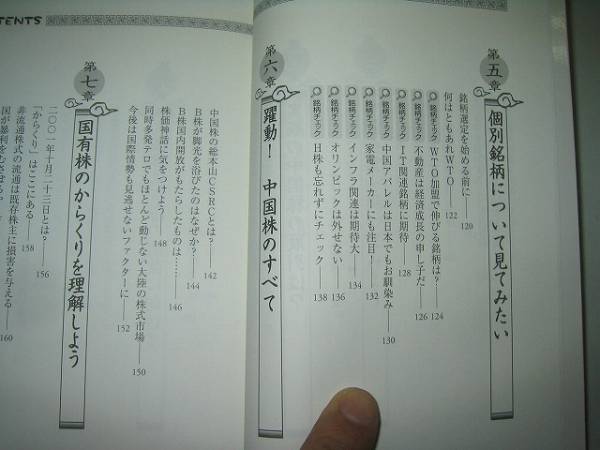 第五章
個別銘柄について見てみたい
銘柄選定を始める前に――120
何はともあれWTO――122
銘柄チェック WTO加盟で伸びる銘柄は?――124
銘柄チェック 不動産は経済成長の申し子だ――126
銘柄チェック IT関連銘柄に期待――128
銘柄チェック 中国アパレルは日本でもお馴染み――130
銘柄チェック 家電メーカーにも注目!――132
銘柄チェック インフラ関連は期待大――134
銘柄チェック オリンピックは外せない――136
銘柄チェック H株も忘れずにチェック――138
第六章
躍動! 中国株のすべて
中国株の総本山CSRCとは?――142
B株が脚光を浴びたのはなぜか?――144
B株国内開放がもたらしたものは……――146
株価神話に気をつけよう――148
同時多発テロでもほとんど動じない大陸の株式市場――150
今後は国際情勢も見逃せないファクターに――152
TENTS
第七章
国有株のからくりを理解しよう
二〇〇一年十月二十三日とは?――156
「からくり」はここにある――158
非流通株式の流通は既存株主に損害を与える――160
国が暴利をむさぼる